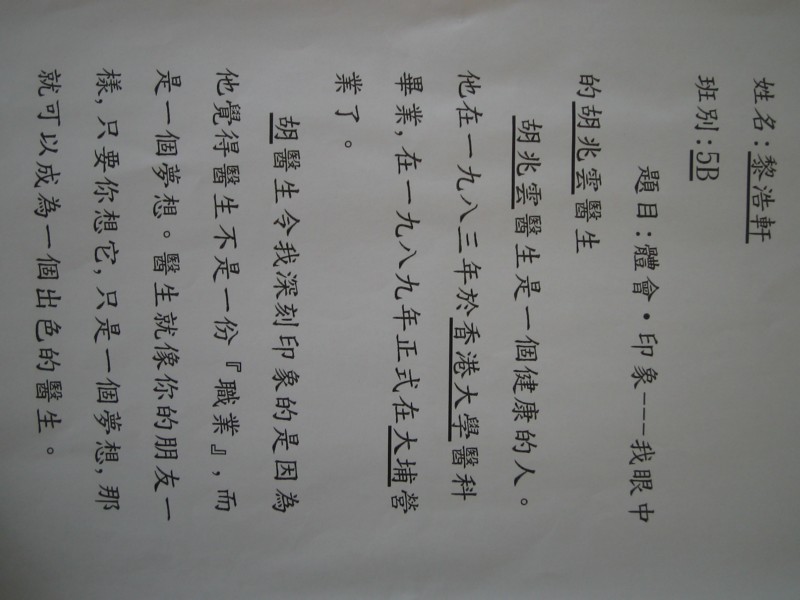 姓名:黎浩軒
班別:5B
題目:體會·印象---我眼中
的胡兆雲醫生
胡兆雲醫生是一個健康的人。
他在一九八三年於香港大學醫科
畢業,在一九八九年正式在大埔營
業了。
胡醫生令我深刻印象的是因為
他覺得醫生不是一份『職業』,而
是一個夢想。醫生就像你的朋友一
樣,只要你想它,只是一個夢想,那
就可以成為一個出色的醫生。